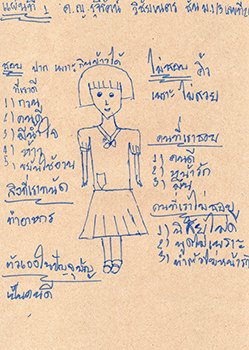 แผ่นที่ 1 ด.ญ. รุจิรัตน์ วิชัย ชั้น ม.1/3 เลขที่
ชอบ ปาก เพราะ กินข้าวได้
ไม่ชอบ ดำ
เพราะ ไม่สวย
1)
2) คนดี
3) มีน้ำใจ
4)
5)
สิ่งที่เราถนัด
ทำอาหาร
ตัวเองในปัจจุบัน
เป็นคนดี
คนที่เราชอบ
1) คนดี
2) น่ารัก
3)
คนที่เราไม่ชอบ
1) นิสัยไม่ดี
2) พูดไม่เพราะ
3) ทำตัวไม่น่ารัก